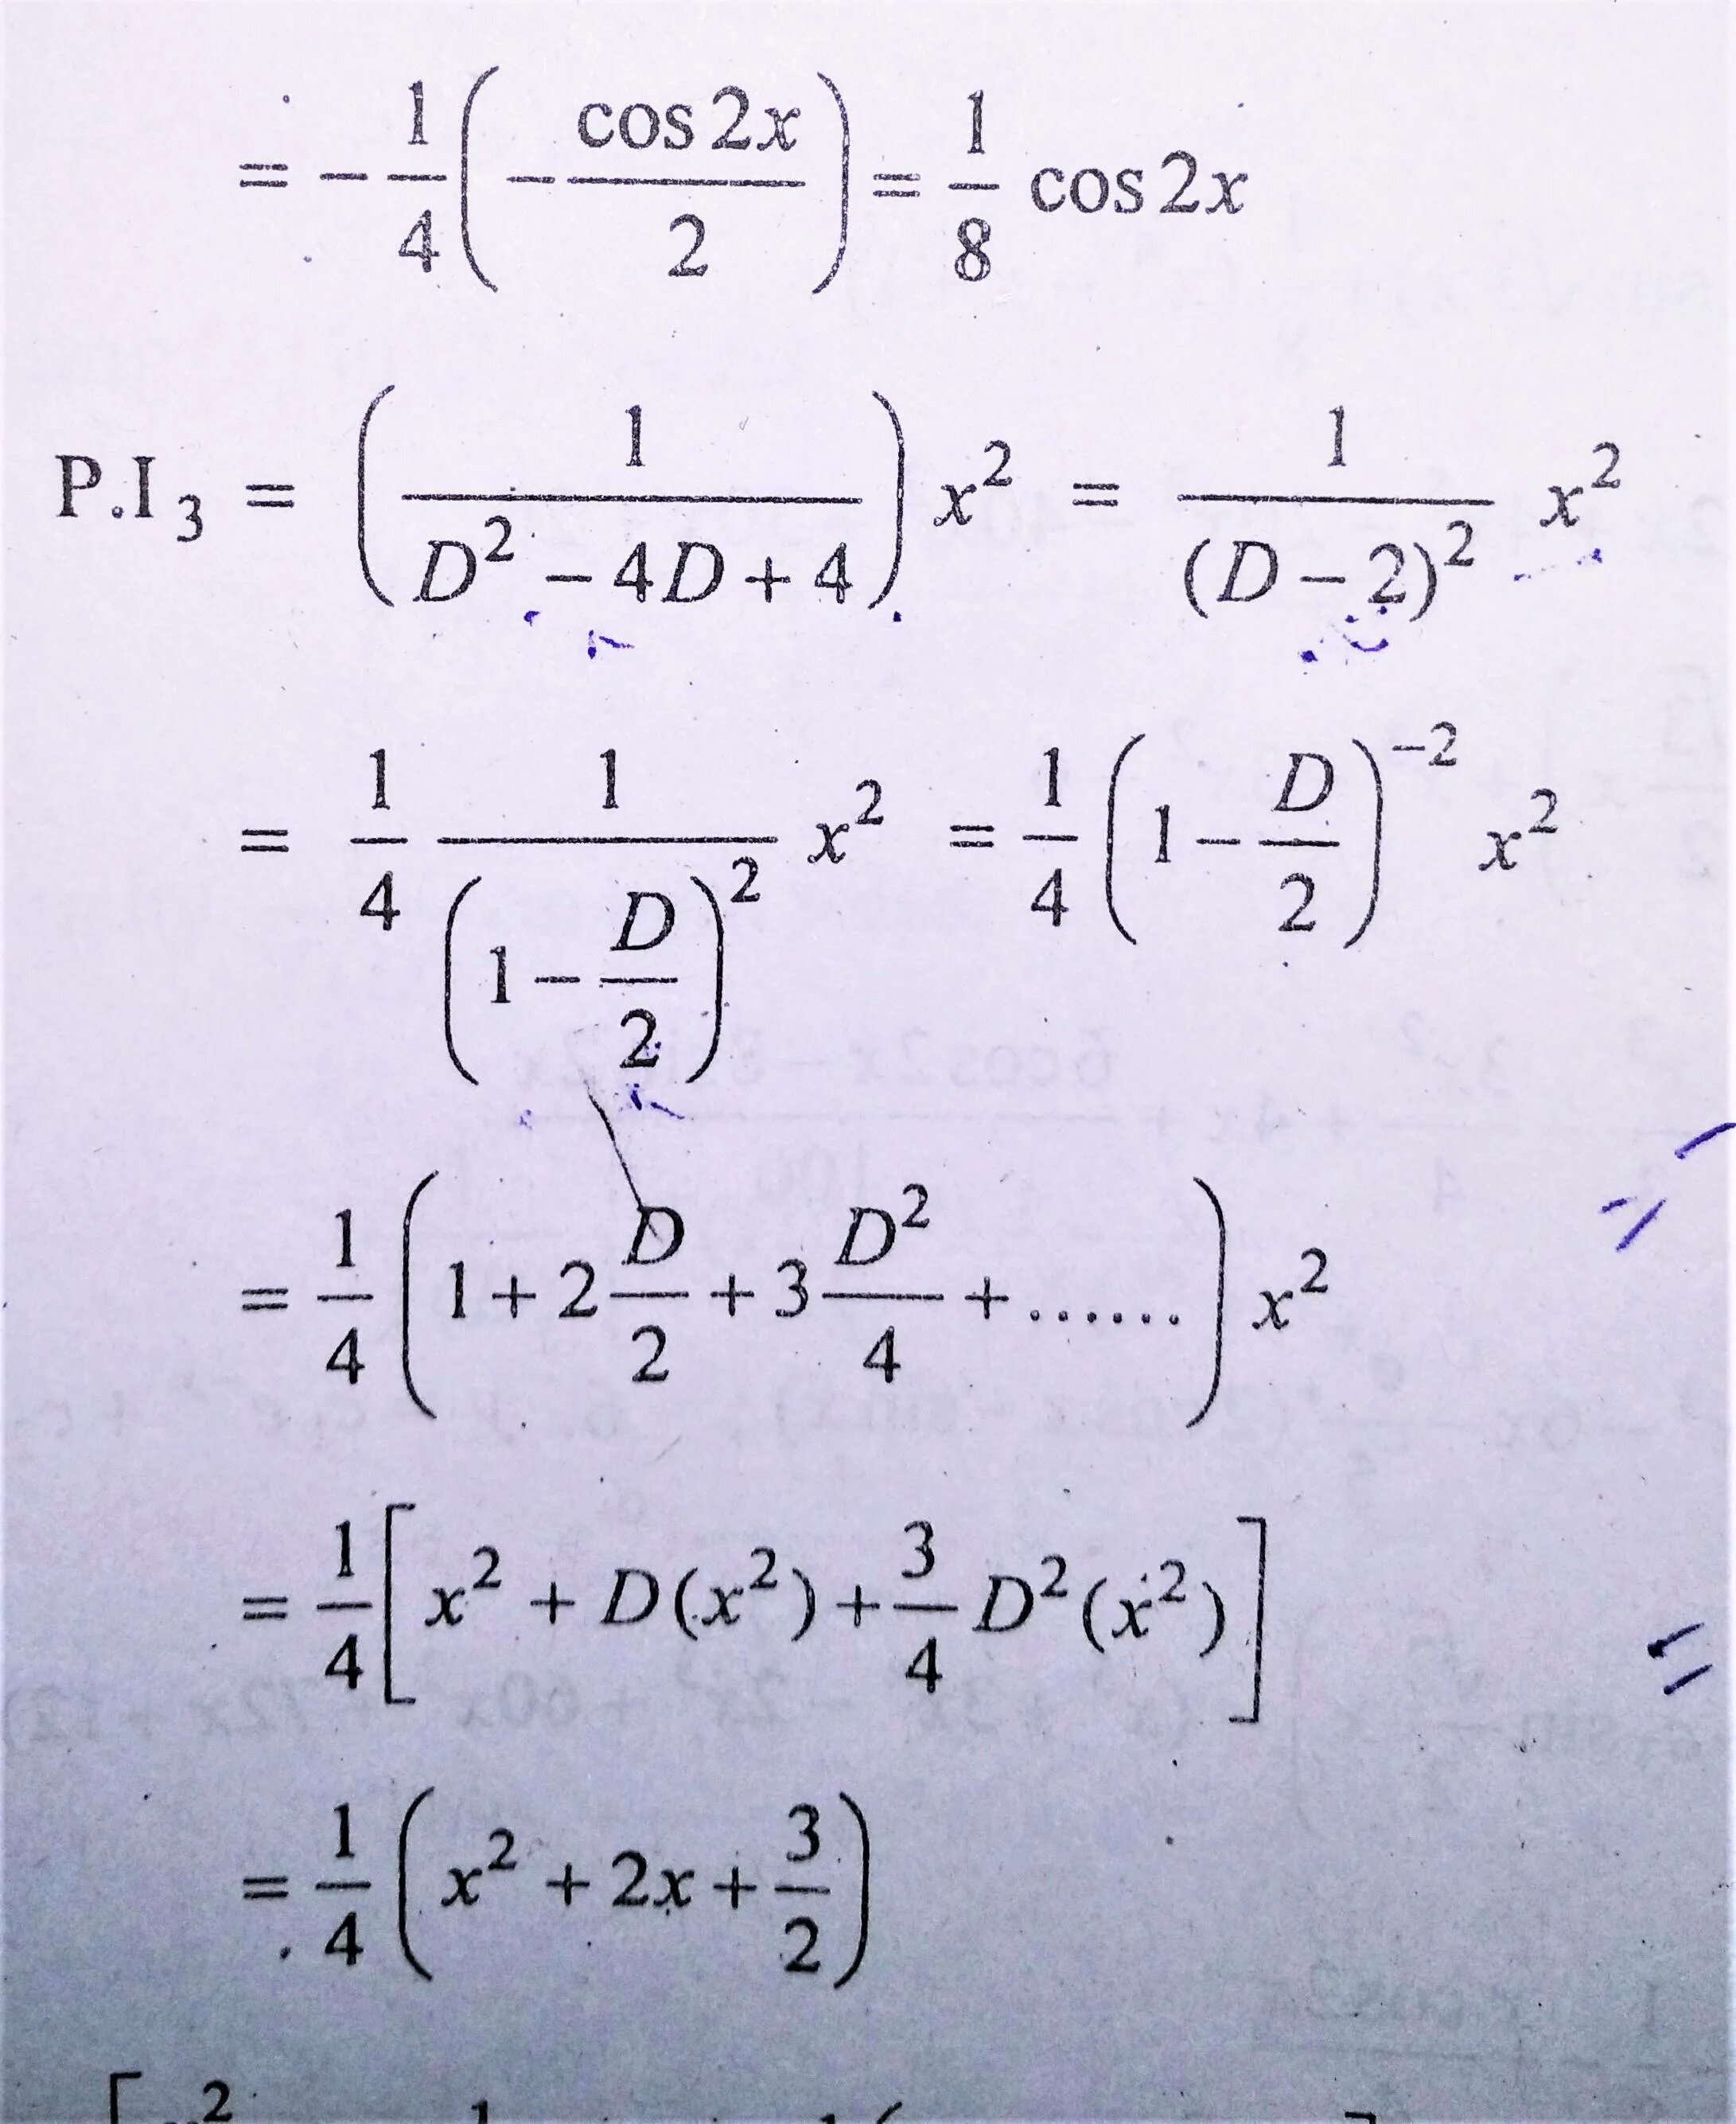 = -\frac{1}{4}\left(-\frac{\cos 2x}{2}\right) = \frac{1}{8} \cos 2x
P.I_3 = \left(\frac{1}{D^2 - 4D + 4}\right) x^2 = \frac{1}{(D-2)^2} x^2
= \frac{1}{4} \frac{1}{\left(1 - \frac{D}{2}\right)^2} x^2 = \frac{1}{4}\left(1 - \frac{D}{2}\right)^{-2} x^2
= \frac{1}{4}\left(1 + 2\frac{D}{2} + 3\frac{D^2}{4} + ......\right) x^2
= \frac{1}{4}\left[x^2 + D(x^2) + \frac{3}{4} D^2(x^2)\right]
= \frac{1}{4}\left(x^2 + 2x + \frac{3}{2}\right)